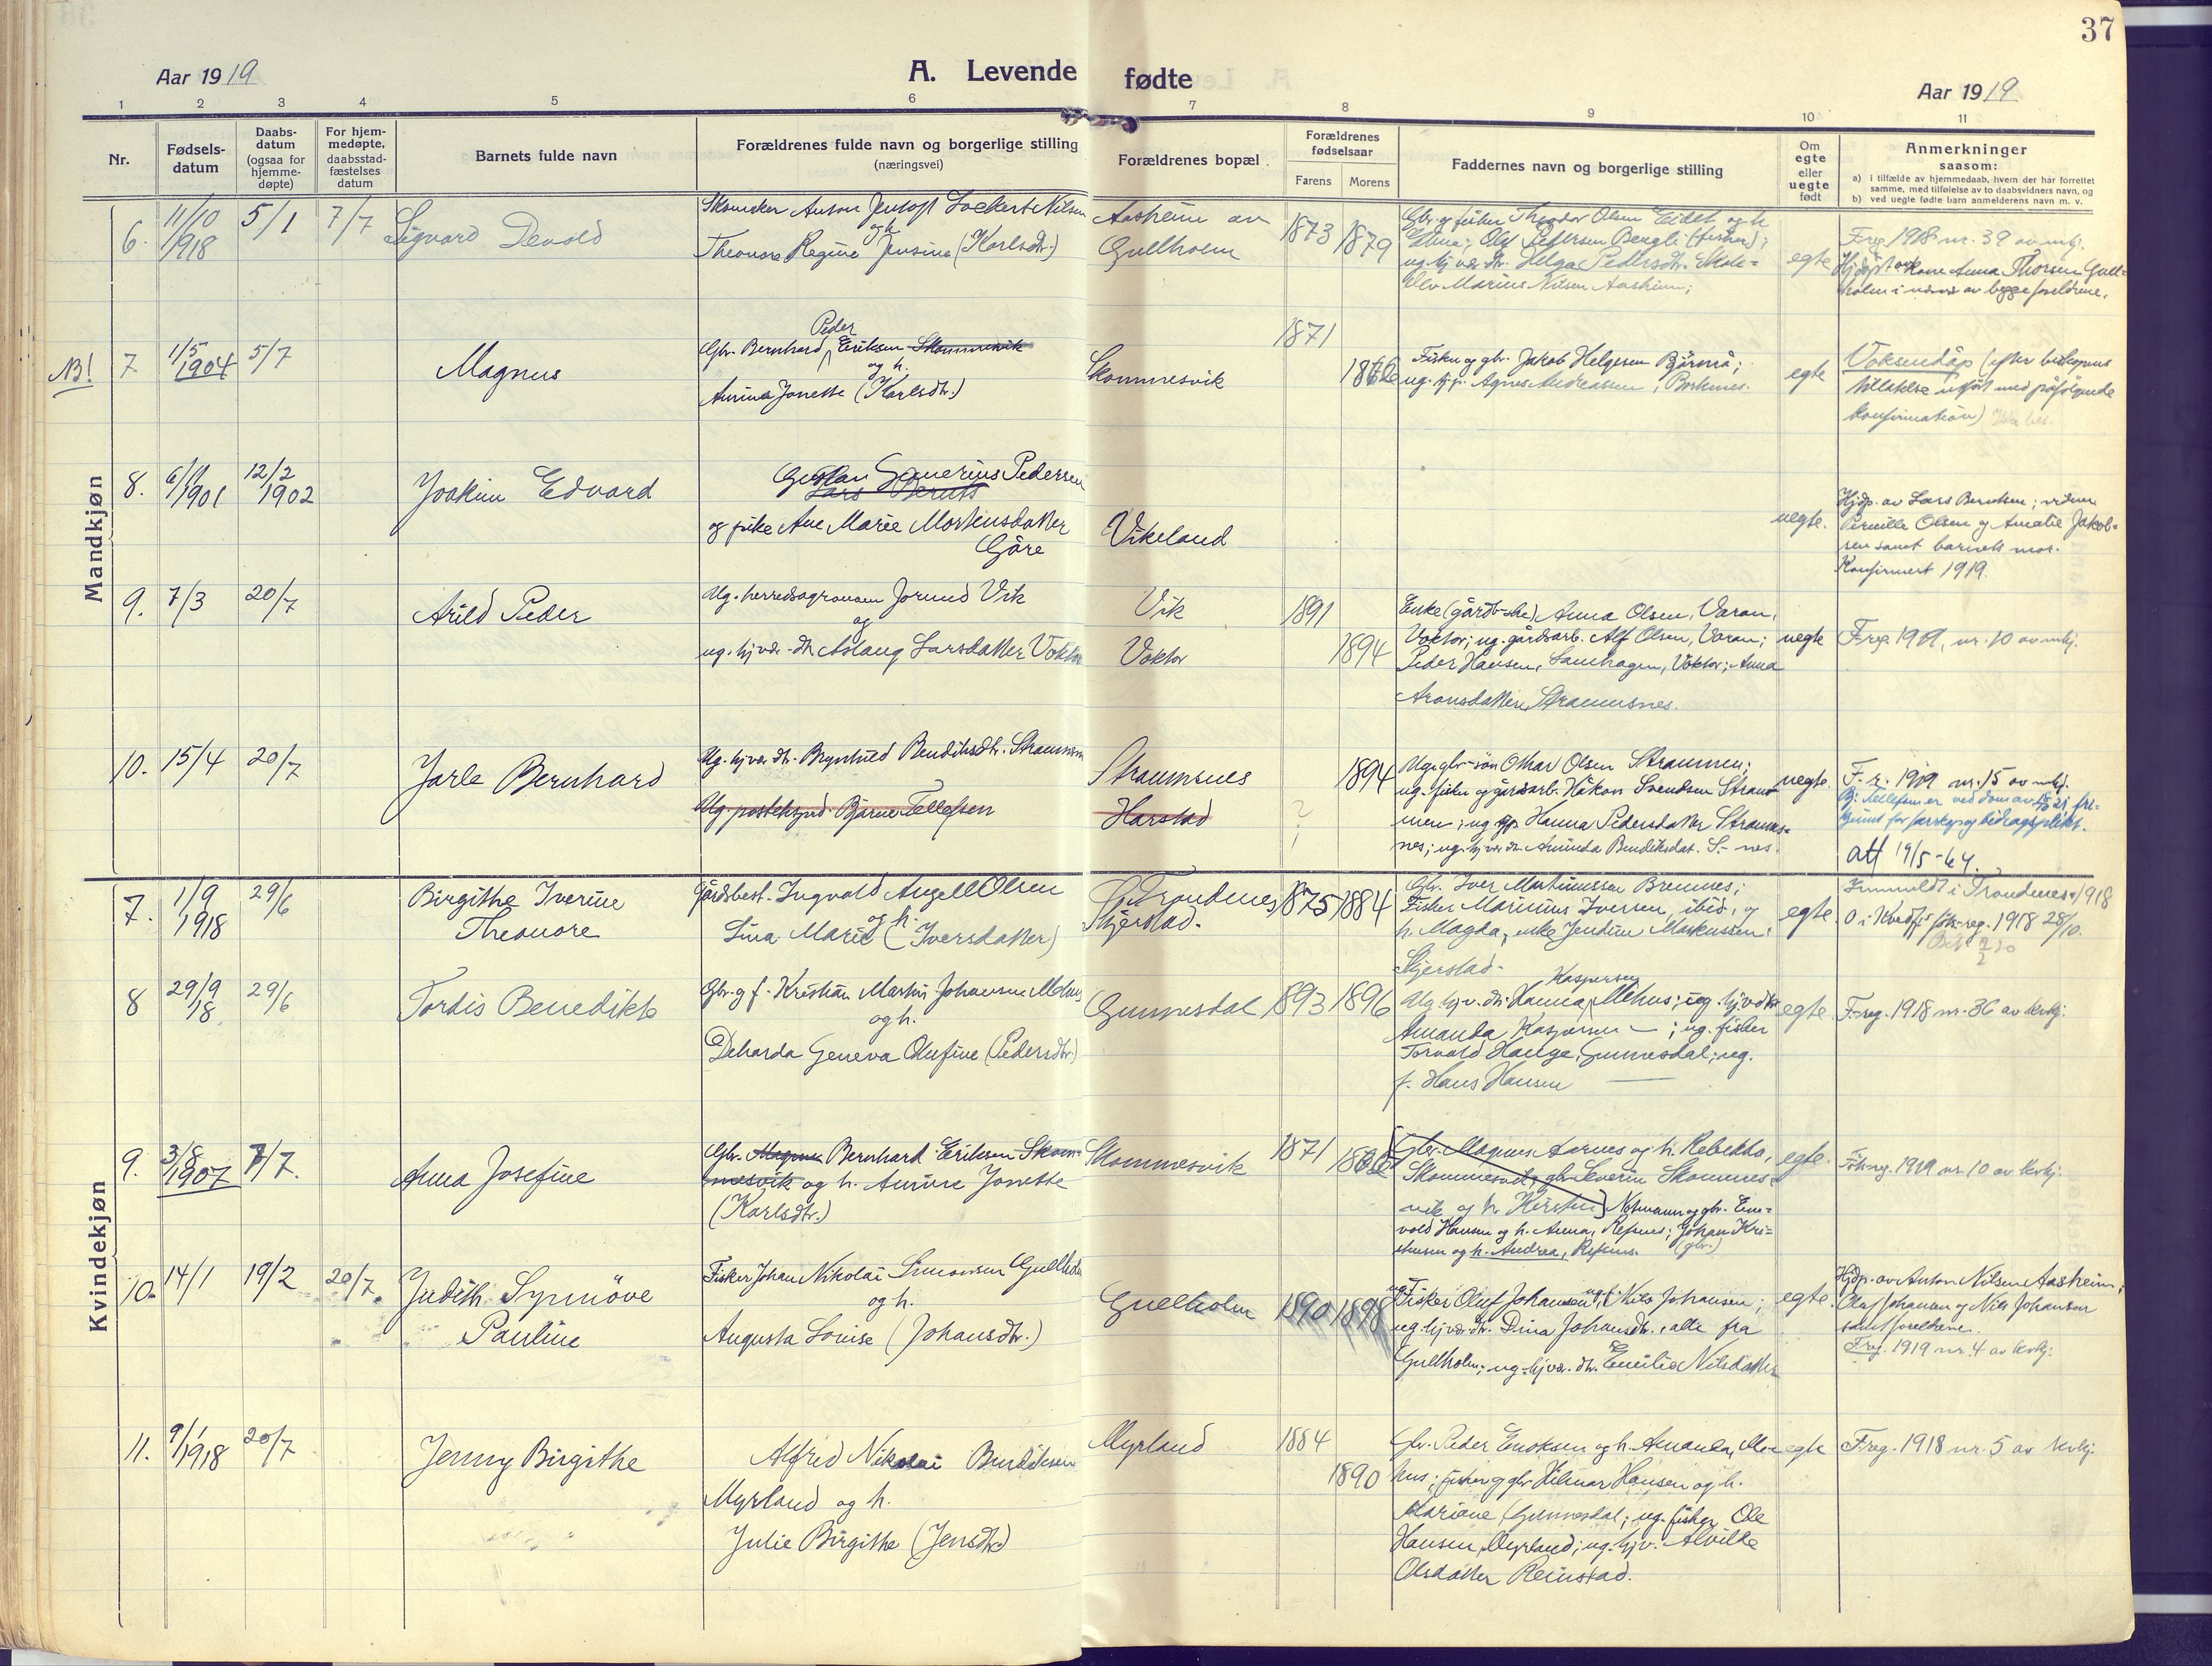 37
Aar 1919
A. Levende fødte
Aar 1919
1 2 3 4 5 6 7 8 9 10 11
Nr.
Fødsels-
datum
Daabs-
datum
(ogsaa for
hjemme-
døpte)
For hjem-
medøpte,
daabsstad-
fæstelses
datum
Barnets fulde navn
Forældrenes fulde navn og borgerlige stilling
(næringsvei)
Forældrenes bopæl
Forældrenes
fødselsaar
Farens
Morens
Faddernes navn og borgerlige stilling
Om
egte
eller
uegte
født
Anmerkninger
saasom:
a) i tilfælde av hjemmedaab, hvem der har forrettet
samme, med tilføielse av to daabsvidners navn, og
b) ved uegte fødte barn anmelderens navn m. v.
Mandkjøn
6. 11/10 1918 5/1 7/7 Sigvard Devold
Skomaker Anton Jentoft Lockert Nilsen
og h.
Theonore Regine Jensine (Karlsdtr.)
Aasheim av
Gullholm
1873 1879
Gbr. og fisker Theodor Olsen Eidet og h.
Elina; Olaf Pedersen Bergli (fisker);
ug. hj. vær. dtr. Helga Pedersdtr.
Elev Marius Nilsen Aasheim;
egte
Freg. 1918 nr. 39 av mkj.
Hjdøpt av Kone Anna Thorsen Gull-
holm i nærvær av begge foreldrene.
NB! 7 1/5 1904 5/7 Magnus
Peder
Gbr. Bernhard Eriksen Skommesvik
og h.
Aurine Jonette (Karlsdtr.)
Skommesvik
1871
1866
Fisker og gbr. Jakob Helgesen
ug. hj. p. Agnes Andreassen,
egte
Voksendåp (efter biskopens
tillatelse utført med påfølgende
konfirmation)
8. 1901 12/2 1902 Joakim Edvard
Gustav Severius Pedersen
og pike Ane Marie Mortensdatter
Gåre
Vikeland
uegte.
Hjdp. av Lars Berntsen; vidner
Pernille Olsen og Amalie Jakob-
sen samt barnets mor.
Konfirmert 1919.
9. 7/3 20/7 Arild Peder
Ug. herredsagronom Jorund Vik
og
ug. hj. vær. dtr. Aslaug Larsdatter Voktor
Vik
Voktor
1891
1894
Enke (gårdbr-ske) Anna Olsen, Varan,
Voktor; ug. gårdsarb. Alf Olsen, Varan;
Peder Hansen, Lamhagen, Voktor; Anna
Aronsdatter, Straumsnes.
uegte
Freg. 1919, nr. 10 av mkj.
10. 15/4 20/7 Jarle Bernhard
Ug. hj vær. dtr. Brynhild Bendiksdtr. Straumsnes
Ug. postekspd. Bjarne Tellefsen
Straumsnes
Harstad
1894
?
Ug. gbr-søn Othar Olsen Straumen;
ug. fisker og gårdsarb. Håkon Svendsen Strau-
men; ug. Hanna Pedersdatter Straums-
nes; ug. hj vær dtr. Aminda Bendiksdat. S.-nes.
uegte.
F. r. 1919 nr. 15 av mkj.
Bj. Tellefsen er ved dom av 21 fri-
kjent for farskap og bidragsplikt.
att 19/5-64.
Kvindekjøn
7. 1/9 1918 29/6 Birgithe Iverine
Theonore
Gårdsbest. Ingvald Angell Olsen
og h.
Lina Marie (Iversdatter)
Trondenes
Skjerstad.
1875 1884
Gbr. Iver Martinussen Bremnes;
Fisker Marinius Iversen, ibid. og
h. Magda, enke Jendine Markussen
Skjerstad.
egte.
Innmeldt i Trondenes 1918
1918 28/10.
8 29/9 18 29/6 Tordis Benedikte
Gbr. og f. Kristian Martin Johansen Mehus
og h.
Deharda Geneva Olufine (Pedersdtr.)
Gunnesdal
1893 1896
Kaspersen
Ug. hj. v. dtr. Hanna Mehus; ug. hj v dtr.
Amanda Kaspersen — ; ug. fisker
Torvald Hauge, Gunnesdal; ug.
f. Hans Hansen —
egte.
F. reg. 1918 nr. 36 av kvkj.
9. 3/8 1907 7/7. Anna Josefine
Gbr. Magnus Bernhard Eriksen Skom-
mesvik og h. Aurine Jonette
(Karlsdtr.)
Skommesvik
1871 1866
[Gbr. Magnus Aarnes og h. Rebekka,
Skommesvik; gbr. Severin Skommes-
vik og h. Kirstin] Notmann og gbr. Ein-
vold Hansen og h. Anna, Refsnes; Johan Kri-
stensen og h. Andrea, Refsnes. (gbr.)
egte.
Føreg. 1919 nr 10 av kvkj.
10. 14/1 19/2 20/7. Judith Synnöve
Pauline
Fisker Johan Nikolai Simonsen Gullholm
og h.
Augusta Louise (Johansdtr.)
Gullholm
1890 1898
ug. Fisker Oluf Johansen, ug. f. Nils Johansen;
ug. hj vær. dtr. Dina Johansdtr., alle fra
Gullholm; ug. hj vær. dtr. Emilie Nilsdatter
egte.
Hjdp. av Anton Nilsen Aasheim;
Olaf Johansen og Nils Johansen
samt foreldrene.
Freg. 1919 nr. 4 av kvkj.
11. 9/1 1918 20/7 Jenny Birgithe
Alfred Nikolai Bendiksen
Myrland og h.
Julie Birgithe (Jensdtr.)
Myrland
1884
1890
Gbr. Peder Enoksen og h. Amanda, Me-
hus; fisker og gbr. Hilmar Hansen og h.
Mariane, Gunnesdal; ug. fisker Ole
Hansen, Myrland; ug. hj v. Alvilde
Olsdatter Reinstad.
egte
Freg. 1918 nr. 5 av kvkj.